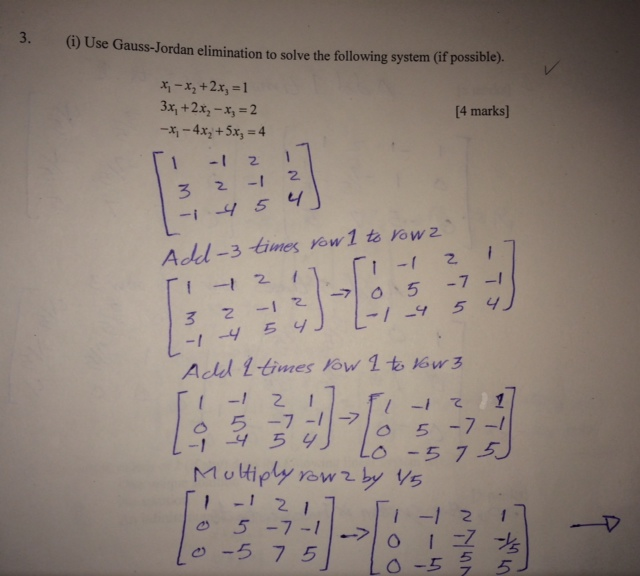 3. (i) Use Gauss-Jordan elimination to solve the following system (if possible).
x₁ − x₂ + 2x₃ = 1
3x₁ + 2x₂ − x₃ = 2 [4 marks]
−x₁ − 4x₂ + 5x₃ = 4
1 -1 2 1
3 2 -1 2
-1 -4 5 4
Add -3 times row 1 to row 2
1 -1 2 1 → 1 -1 2 1
3 2 -1 2 0 5 -7 -1
-1 -4 5 4 -1 -4 5 4
Add 1 times row 1 to row 3
1 -1 2 1 → 1 -1 2 1
0 5 -7 -1 0 5 -7 -1
-1 -4 5 4 0 -5 7 5
Multiply row 2 by 1/5
1 -1 2 1 → 1 -1 2 1 →
0 5 -7 -1 0 1 -7/5 -1/5
0 -5 7 5 0 -5 7 5